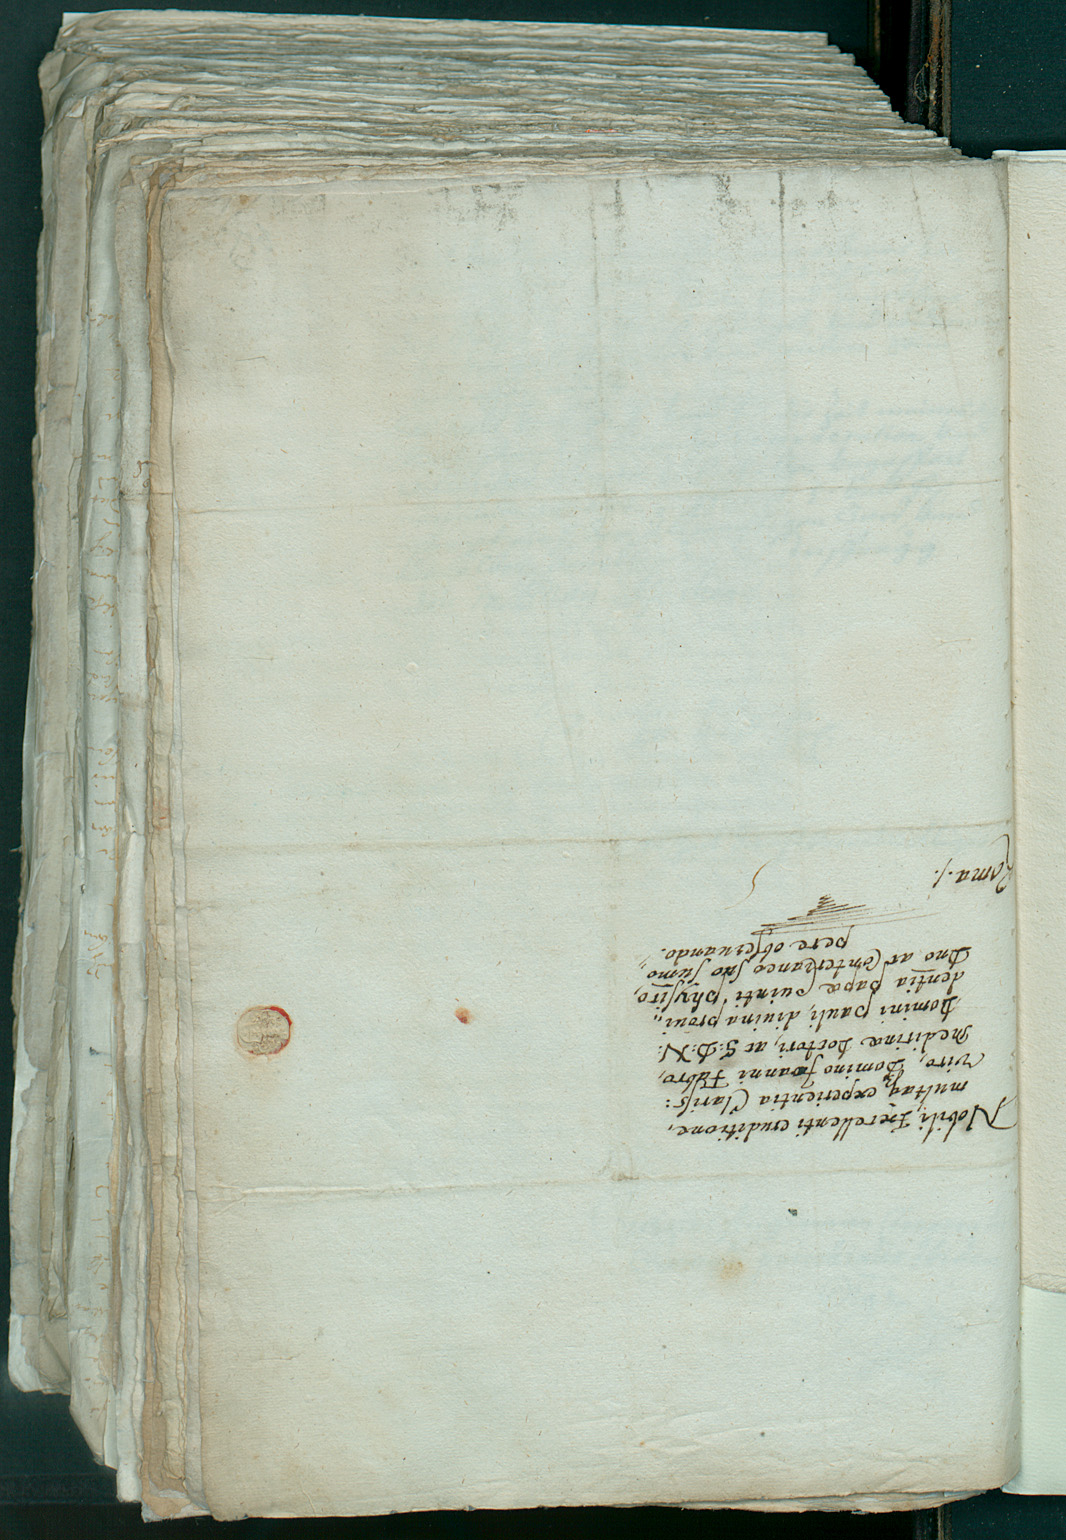 Nobili, Excellenti eruditione,
multaq; experientia Clariss:
viro, Domino Joanni Fabro,
Medicinæ Doctori, ac S: D: N:
Domini Pauli, diuina proui„
dentia Papæ Quinti Physico,
Dno ac Conterraneo suo sumo„
pere obseruando.
Roma /.